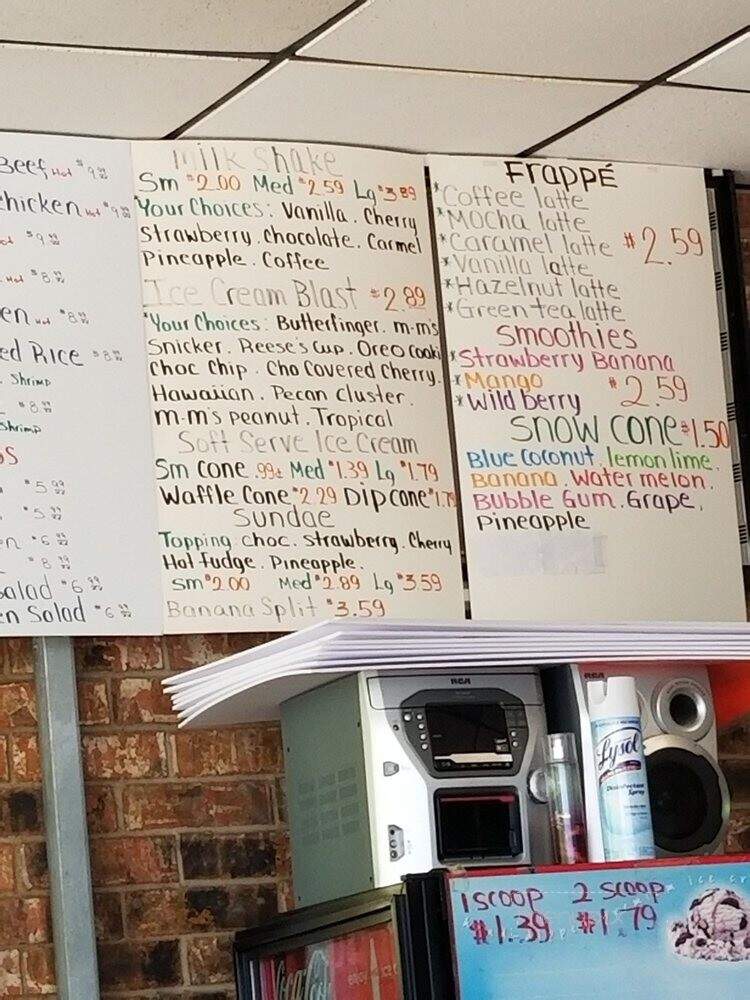 Beef Hot $9.99
hicken Hot $9.99
$9.99
$8.99
en Hot $8.99
ed Rice $8.99
Shrimp
$8.99
Shrimp
$5.99
$5.99
n $6.99
$8.99
Salad $6.99
en Salad $6.99
Milk Shake
Sm $2.00 Med $2.59 Lg $3.89
*Your Choices: Vanilla . Cherry
Strawberry . Chocolate . Carmel
Pineapple . Coffee
Ice Cream Blast $2.89
*Your Choices: Butterfinger . m-m's
Snicker . Reese's Cup . Oreo Cooki
Choc Chip . Cho Covered Cherry .
Hawaiian . Pecan Cluster .
m-m's peanut . Tropical
Soft Serve Ice Cream
Sm Cone .99¢ Med $1.39 Lg $1.79
Waffle Cone $2.29 Dip Cone $1.79
Sundae
Topping choc . Strawberry . Cherry
Hot fudge . Pineapple .
Sm $2.00 Med $2.89 Lg $3.59
Banana Split $3.59
Frappé
*Coffee latte
*Mocha latte
*Caramel latte $2.59
*Vanilla latte
*Hazelnut latte
*Green tea latte
Smoothies
*Strawberry Banana
*Mango $2.59
*Wild berry
Snow Cone $1.50
Blue Coconut . lemon lime .
Banana . Water melon .
Bubble Gum . Grape ,
Pineapple
RCA
RCA
Lysol
Disinfectant
Spray
1 scoop 2 scoop
$1.39 $1.79
Coca-Cola